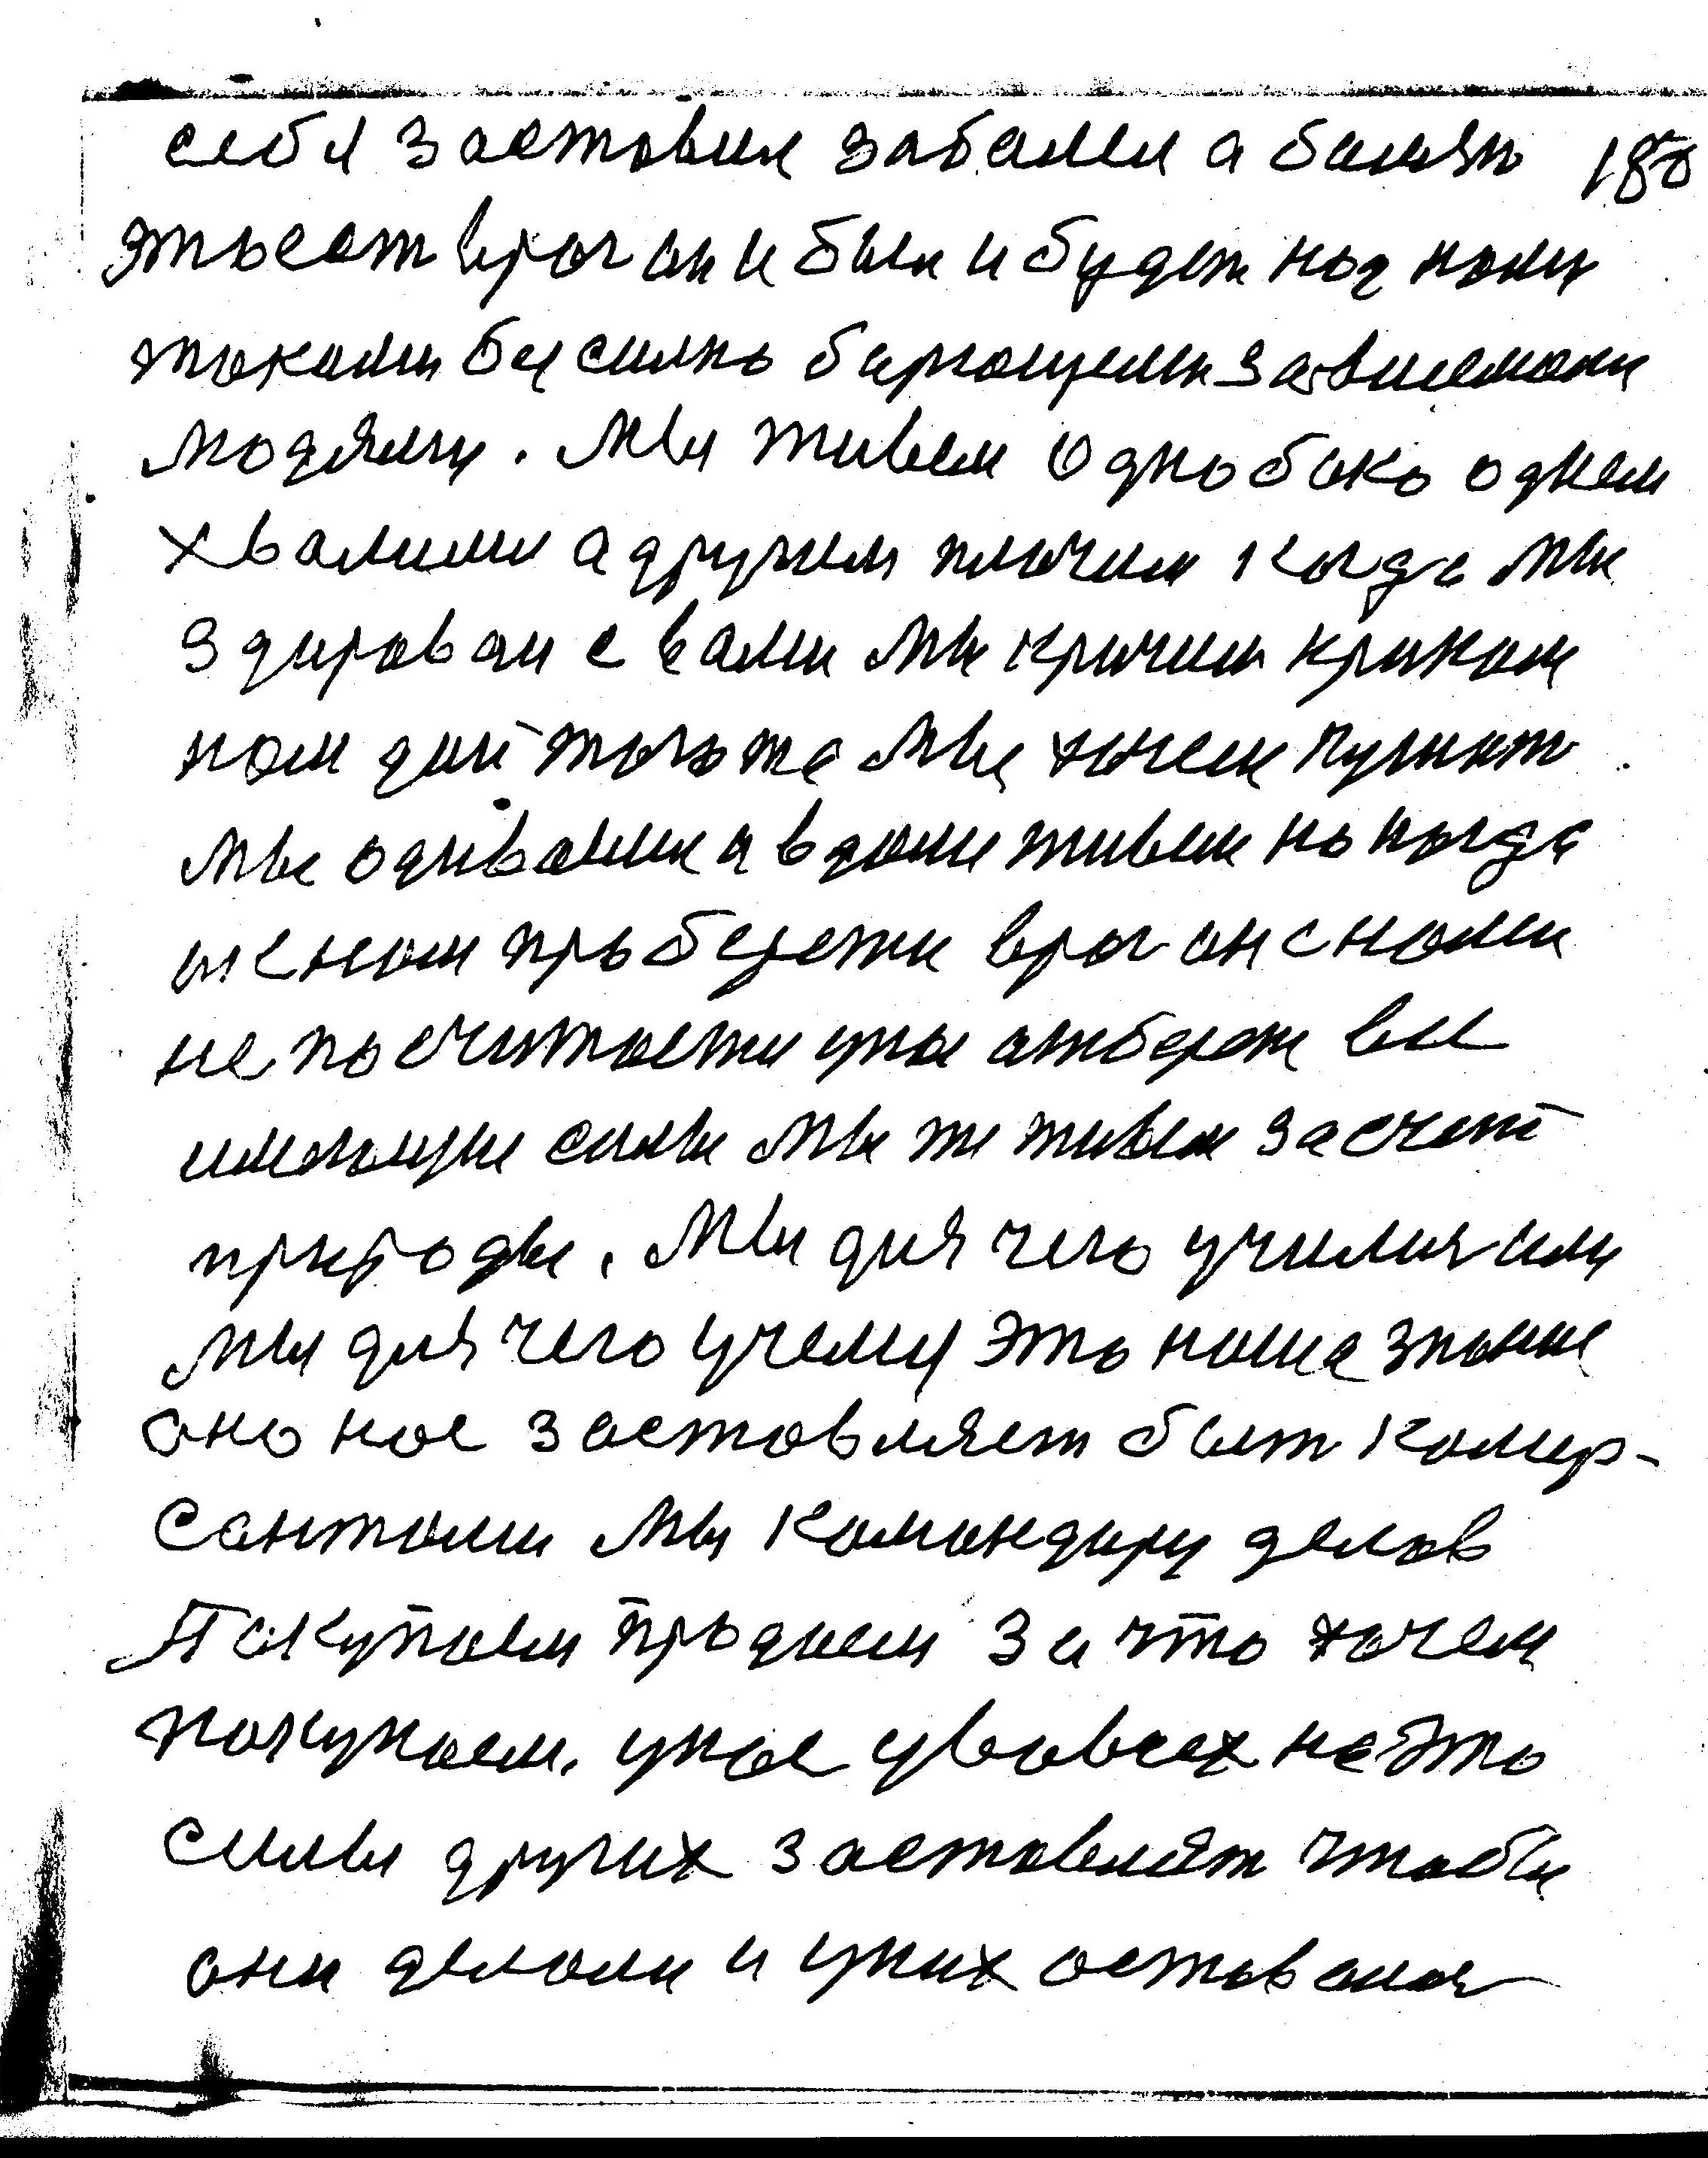 себя заставил заболел а болезь 180
этоест враг он и был и будет над нами
такими бисилно бирющеми зависемоми
людями. Мы живем однобоко однем
хвалими а другим плючим когда мы
здороваи с вами мы кричим криком
нам дай того же мы хочем кушат
мы одиваими а в доме живем но когда
же нам проберети враг он с нами
не посчитаети унас отберет все
имеющие силы мы же живем за счет
природы. Мы для чего училися или
мы для чего учемы это наше знание
оно нас заставляет быт комер-
сантоми мы командиры делов
Покупаем продаем за что хочем
покупаем. унас увовсех на это
силы других заставлят чтобы
они делали и уних оставался